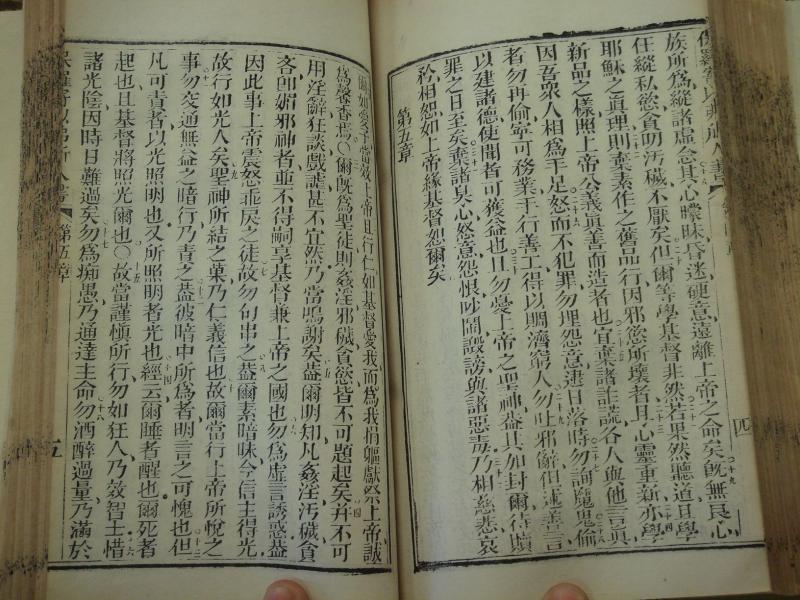 保羅寄以弗所人書 第四章
族所爲縱諸虛念其心矇昧昏迷硬意遠離上帝之命矣既無良心
任縱私慾貪叨汚穢不厭矣但爾等學基督非然若果然聽道且學
耶穌之眞理則棄素作之舊品行因邪慾所壞者且心靈重新亦學
新品之樣照上帝公義眞善而造者也宜棄諸誑各人與他言眞
因吾衆人相爲手足怒而不犯罪勿埋怨意連日落時勿詢魔鬼偷
者勿再偷寧可務業手行善工得以賙濟窮人勿吐邪辭但進善言
以建諸德使聞者可獲益也且勿憂上帝之聖神益其加封爾待贖
罪之日至矣棄諸臭心怒意怨恨吵鬧譭謗與諸惡毒乃相慈悲哀
矜相恕如上帝緣基督恕爾矣
第五章
四
爾如愛子當效上帝且行仁如基督愛我而爲我捐軀獻祭上帝誠
爲馨香焉爾既爲聖徒則姦淫邪穢貪慾皆不可題起矣并不可
用淫辭狂談戲謔甚不宜然乃當鳴謝矣蓋爾明知凡姦淫汚穢貪
吝卽媚邪神者並不得嗣享基督兼上帝之國也勿爲虛言誘惑蓋
因此事上帝震怒乖戾之徒故勿同串之蓋爾素暗昧今信主得光
故行如光人矣聖神所結之菓乃仁義信也故爾當行上帝所悅之
事勿交通無益之暗行乃責之蓋彼暗中所爲者明言之可愧也但
凡可責者以光照明也又所照明者光也經云爾睡者醒也爾死者
起也且基督將照光爾也故當謹愼所行勿如狂人乃效智士惜
諸光陰因時日難過矣勿爲痴愚乃通達主命勿酒醉過量乃滿於
保羅寄以弗所人書 第五章
五